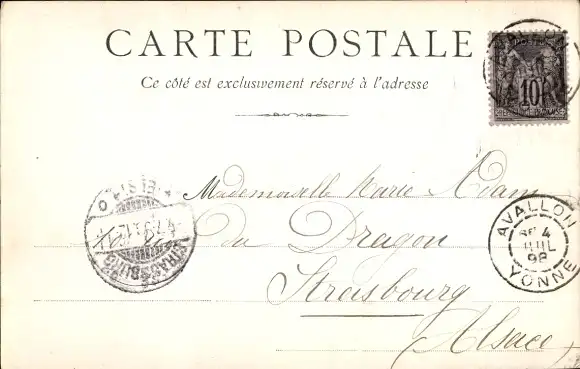 CARTE POSTALE
Ce côté est exclusivement réservé à l'adresse
10
Mademoiselle Marie Adam
du Dragon
Strasbourg
Alsace
AVALLON
4
JUIL
98
YONNE
STRASSBURG